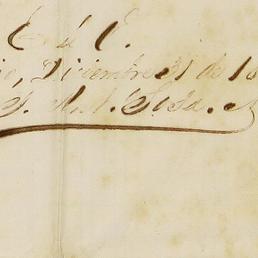 E. d. E.
io, Diciembre 31 de 18
S. M. A. Sosa.